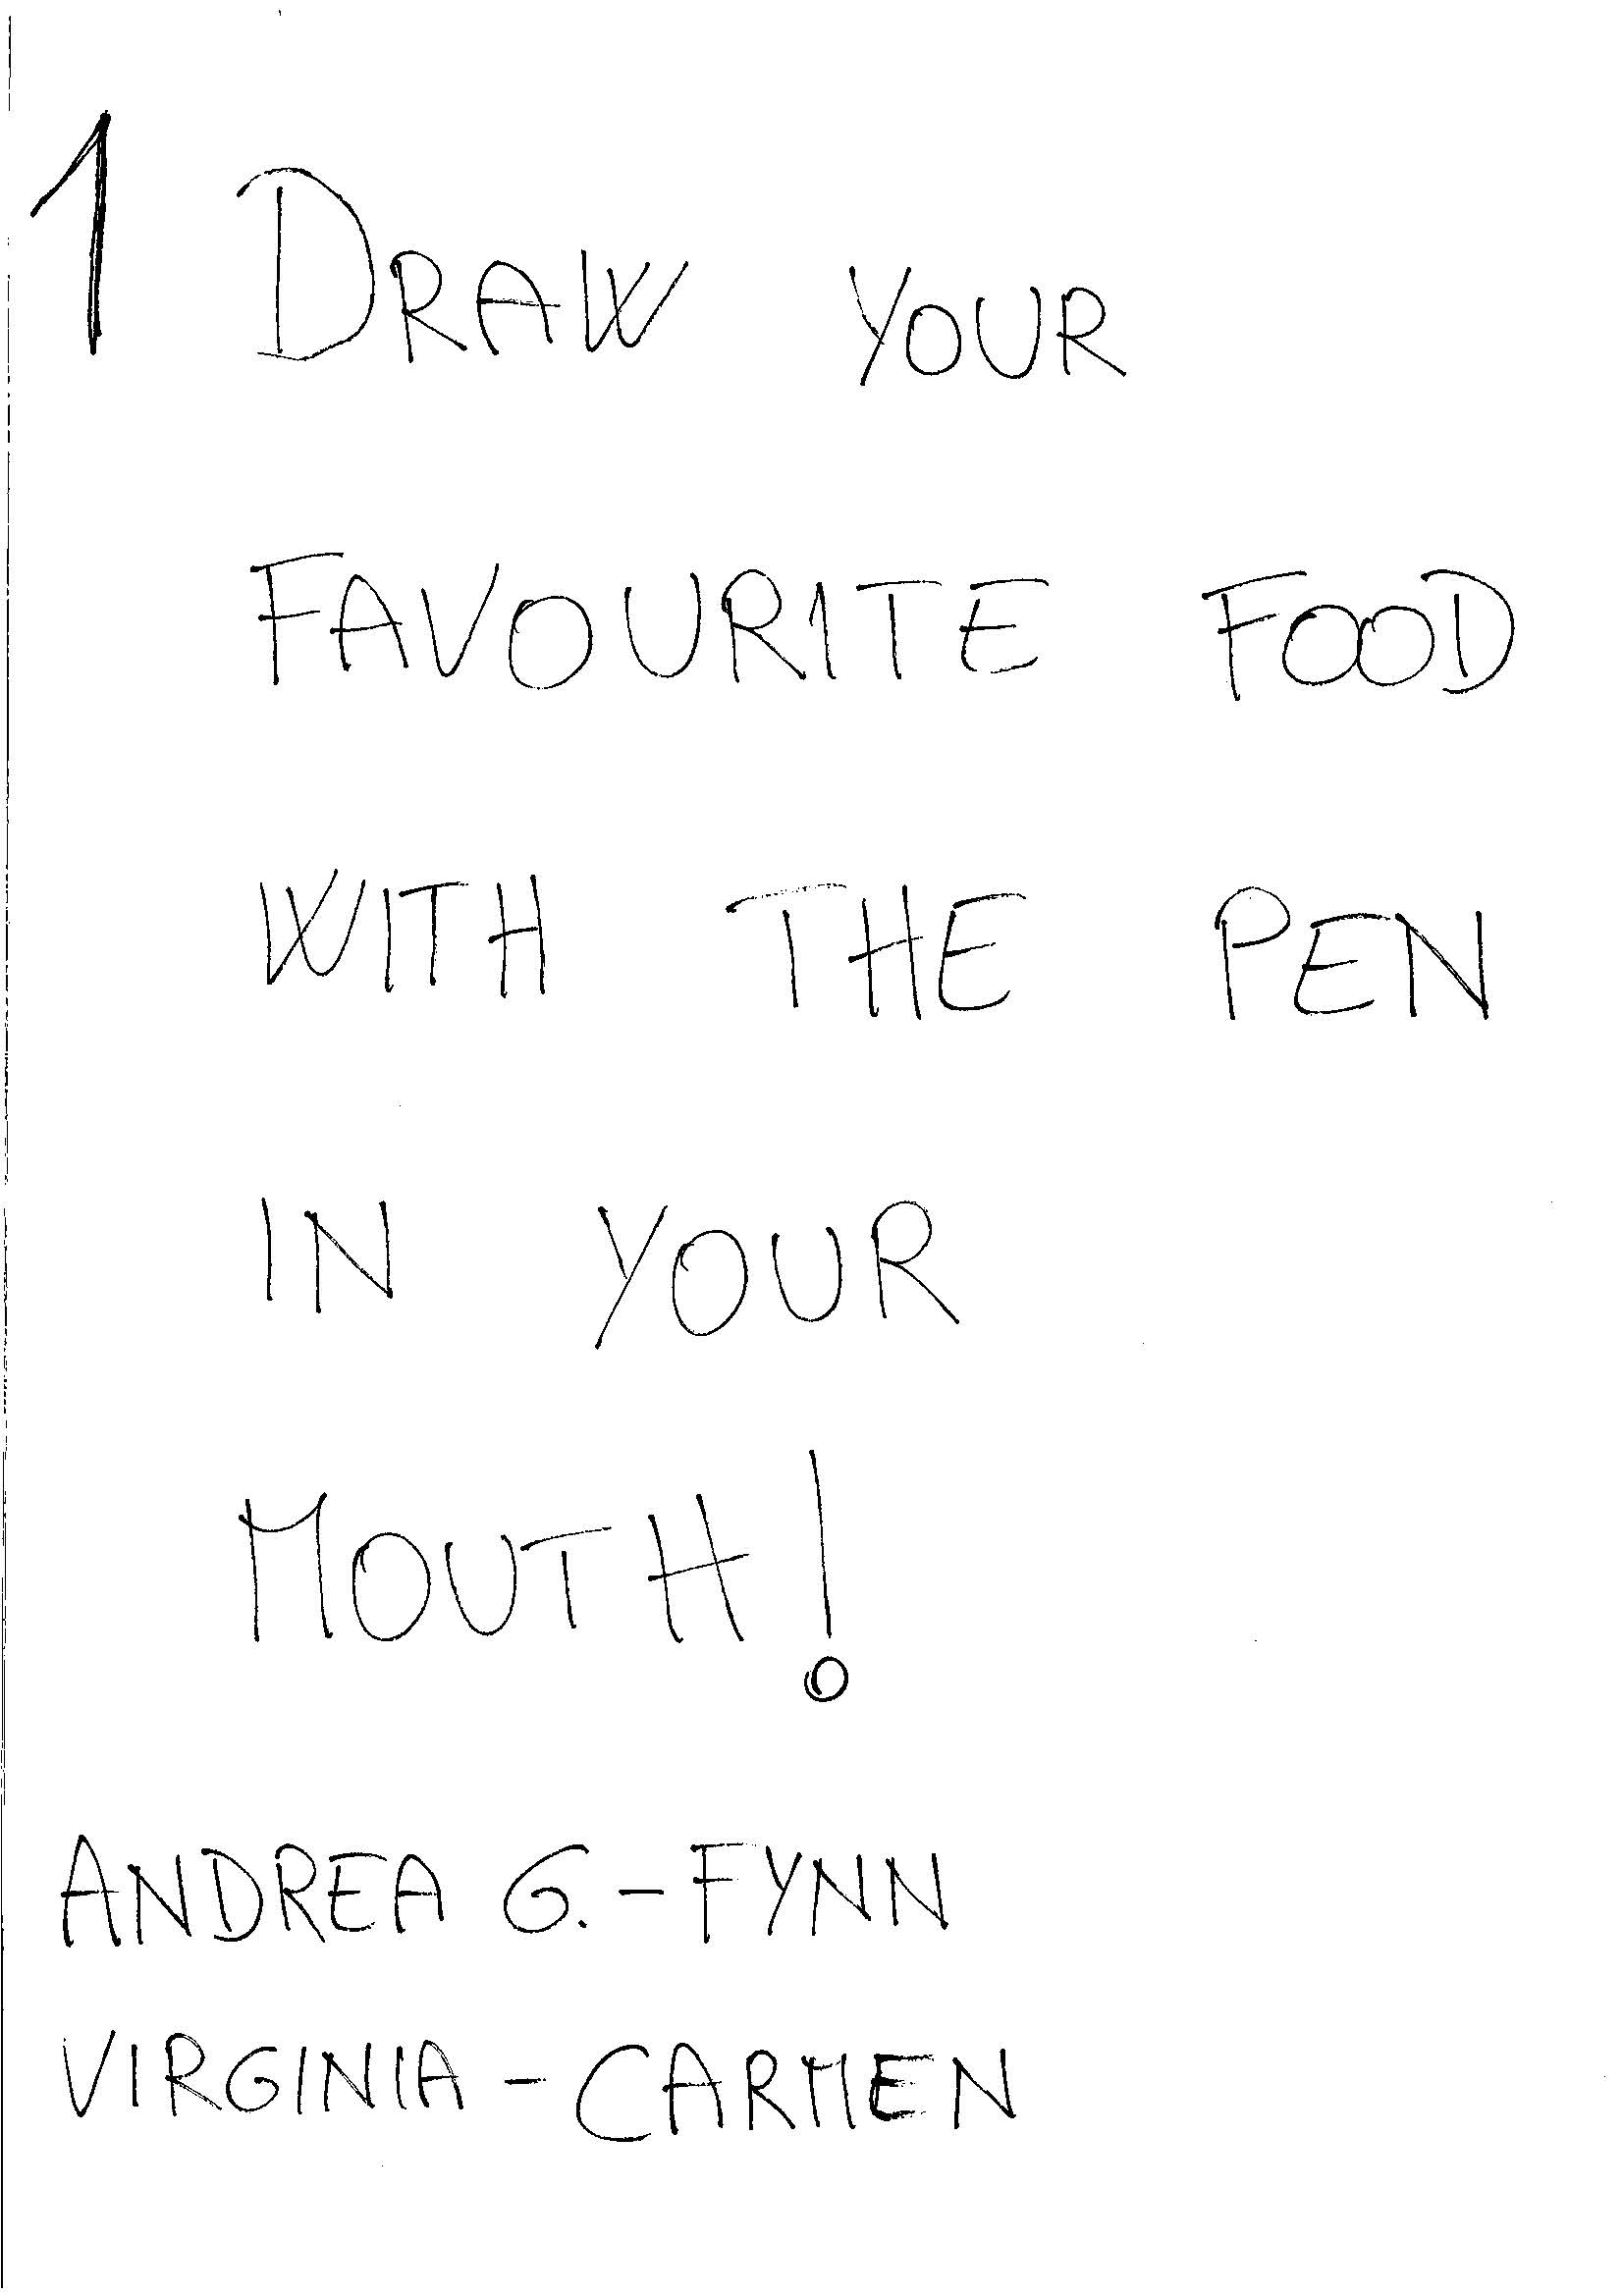 1 DRAW YOUR
FAVOURITE FOOD
WITH THE PEN
IN YOUR
MOUTH!
ANDREA G.-FYNN
VIRGINIA-CARMEN